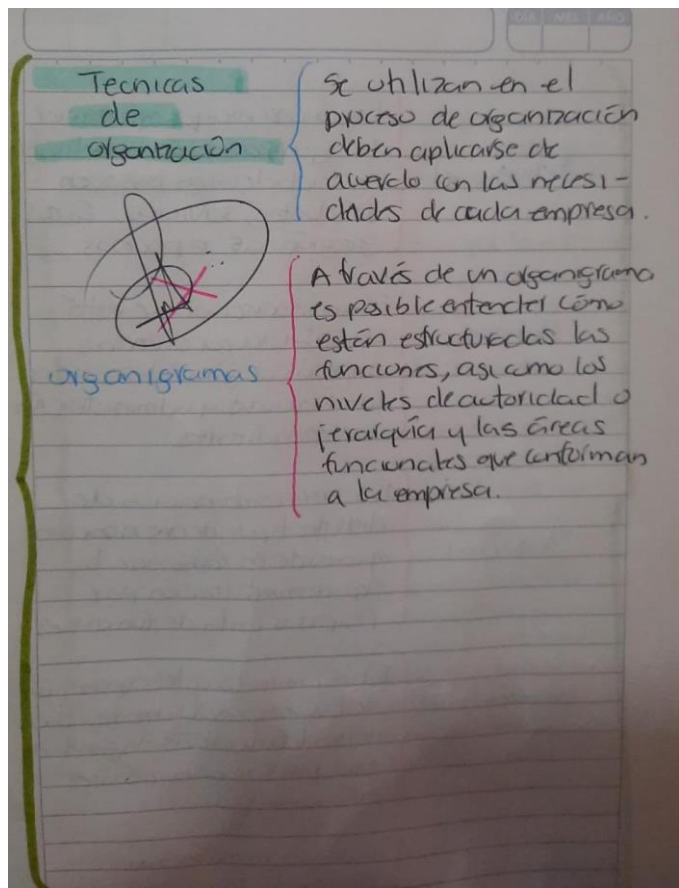 DÍA MES AÑO
Tecnicas
de
organización
Se utilizan en el
proceso de organización
deben aplicarse de
acuerdo con las necesi-
dades de cada empresa.
organigramas
A través de un organigrama
es posible entender cómo
están estructuradas las
funciones, asi como los
niveles de autoridad o
jerarquía y las áreas
funcionales que conforman
a la empresa.